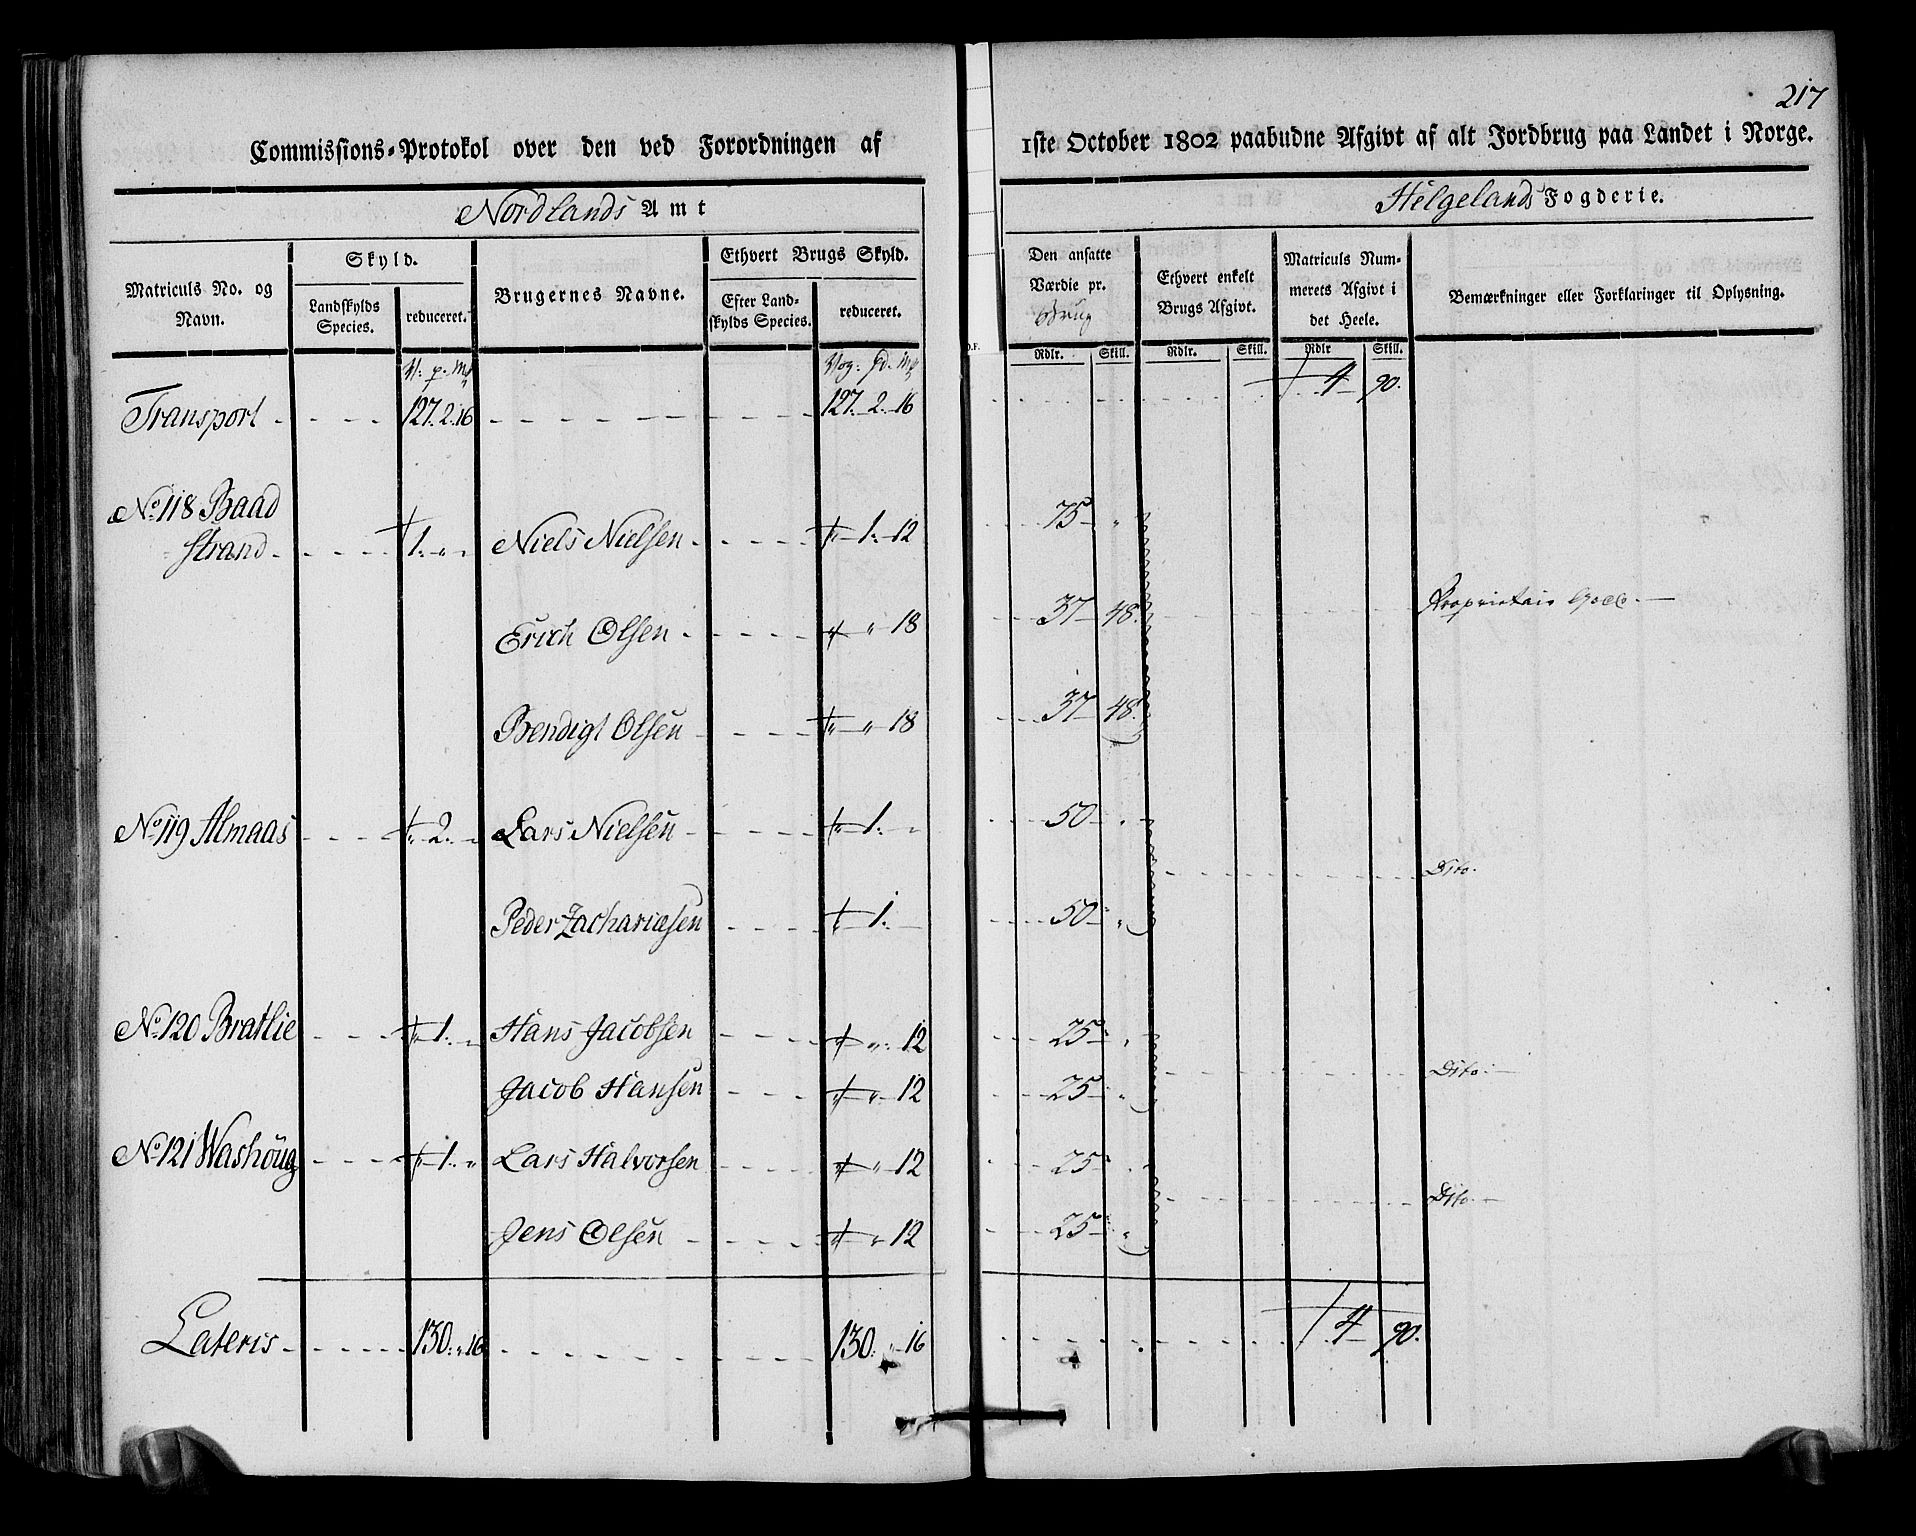 217
Commissions-Protokol over den ved Forordningen af 1ste October 1802 paabudne Afgivt af alt Jordbrug paa Landet i Norge.
Nordlands Amt
Helgelands Fogderie.
Matriculs No. og Navn.
Skyld.
Landskylds Species.
reduceret.
Brugernes Navne.
Ethvert Brugs Skyld.
Efter Landskylds Species.
reduceret.
Den ansatte Værdie pr. Brug
Ethvert enkelt Brugs Afgivt.
Matriculs Nummerets Afgivt i det Heele.
Bemærkninger eller Forklaringer til Oplysning.
Rdlr. Skill. Rdlr. Skill. Rdlr Skill.
V: p. Mk Vog: pd. Mk
Transport - - - - 127. 2. 16 - - - - - 127. 2. 16 - - - - 4 90.
No. 118 Baad
Strand - - - - 1. " " Niels Nielsen - - - - " 1. 12 - - 75 "
Erich Olsen - - - - " " 18 - - 37 48. - - - - Proprietair Gods. —
Bendigt Olsen - - - - " " 18 - - 37 48.
No. 119 Almaas - - - - " 2. " Lars Nielsen - - - - " 1. " - - 50 "
Dito.
Peder Zachariæsen - - - " 1. - - - 50 "
No. 120 Bratlie - - - - " 1. " Hans Jacobsen - - - - " " 12 - - 25 "
Dito. —
Jacob Hansen - - - - " " 12 - - 25 "
No. 121 Washoug - - - - " 1. " Lars Halvorsen - - - - " " 12 - - 25 "
Dito. —
Jens Olsen - - - - " " 12 - - 25 "
Lateris - - - - 130. " 16 - - - - - 130. " 16 - - - - 4 90.